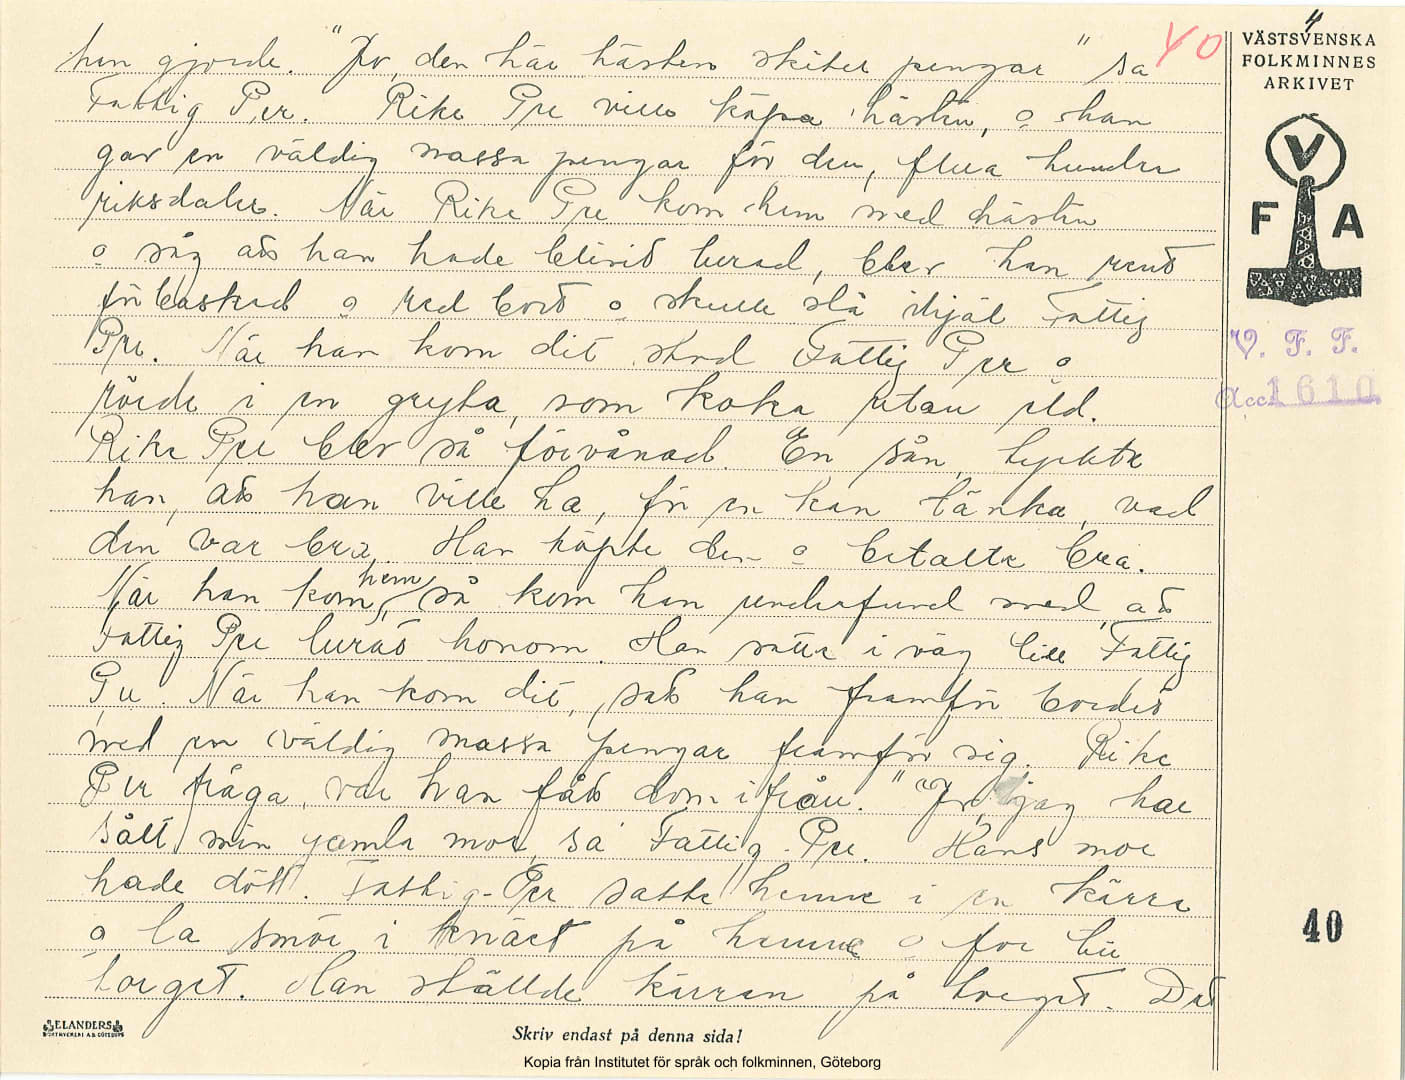 han gjorde. "Jo, den här hästen skiter pengar" sa
Fattig Per. Rike Per ville köpa hästen, o han
gav en väldig massa pengar för den, flera hundra
riksdaler. När Rike Per kom hem med hästen
o såg att han hade blivit lurad, blev han rent
förbaskad o red bort o skulle slå ihjäl Fattig
Per. När han kom dit stod Fattig Per o
rörde i en gryta, som koka utan eld.
Rike Per blev så förvånad. En sån, tyckte
han, att han ville ha, för en kan tänka, vad
den var bra. Han köpte den o betalte bra.
När han kom hem, så kom han underfund med, att
Fattig Per lurat honom. Han satte i väg till Fattig
Per. När han kom dit, satt han framför bordet
med en väldig massa pengar framför sig. Rike
Per fråga, var han fått dom ifrån. "Jo, jag har
sålt min gamla mor, sa Fattig-Per. Hans mor
hade dött. Fattig-Per satte henne i en kärra
o la smör i knäet på henne o for till
torget. Han ställde kärran på torget. Det
40
4
VÄSTSVENSKA
FOLKMINNES
ARKIVET
V
F A
V. F. F.
Acc. 1610
40
ELANDERS
Skriv endast på denna sida!
Kopia från Institutet för språk och folkminnen, Göteborg